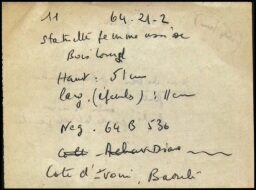 11 64-21-2
Statuette femme assise
Bois lourd
Haut : 51 cm
larg. (épaules) : 11 cm
Neg. 64 B 536
Coll
Cote d'Ivoire, Baoulé